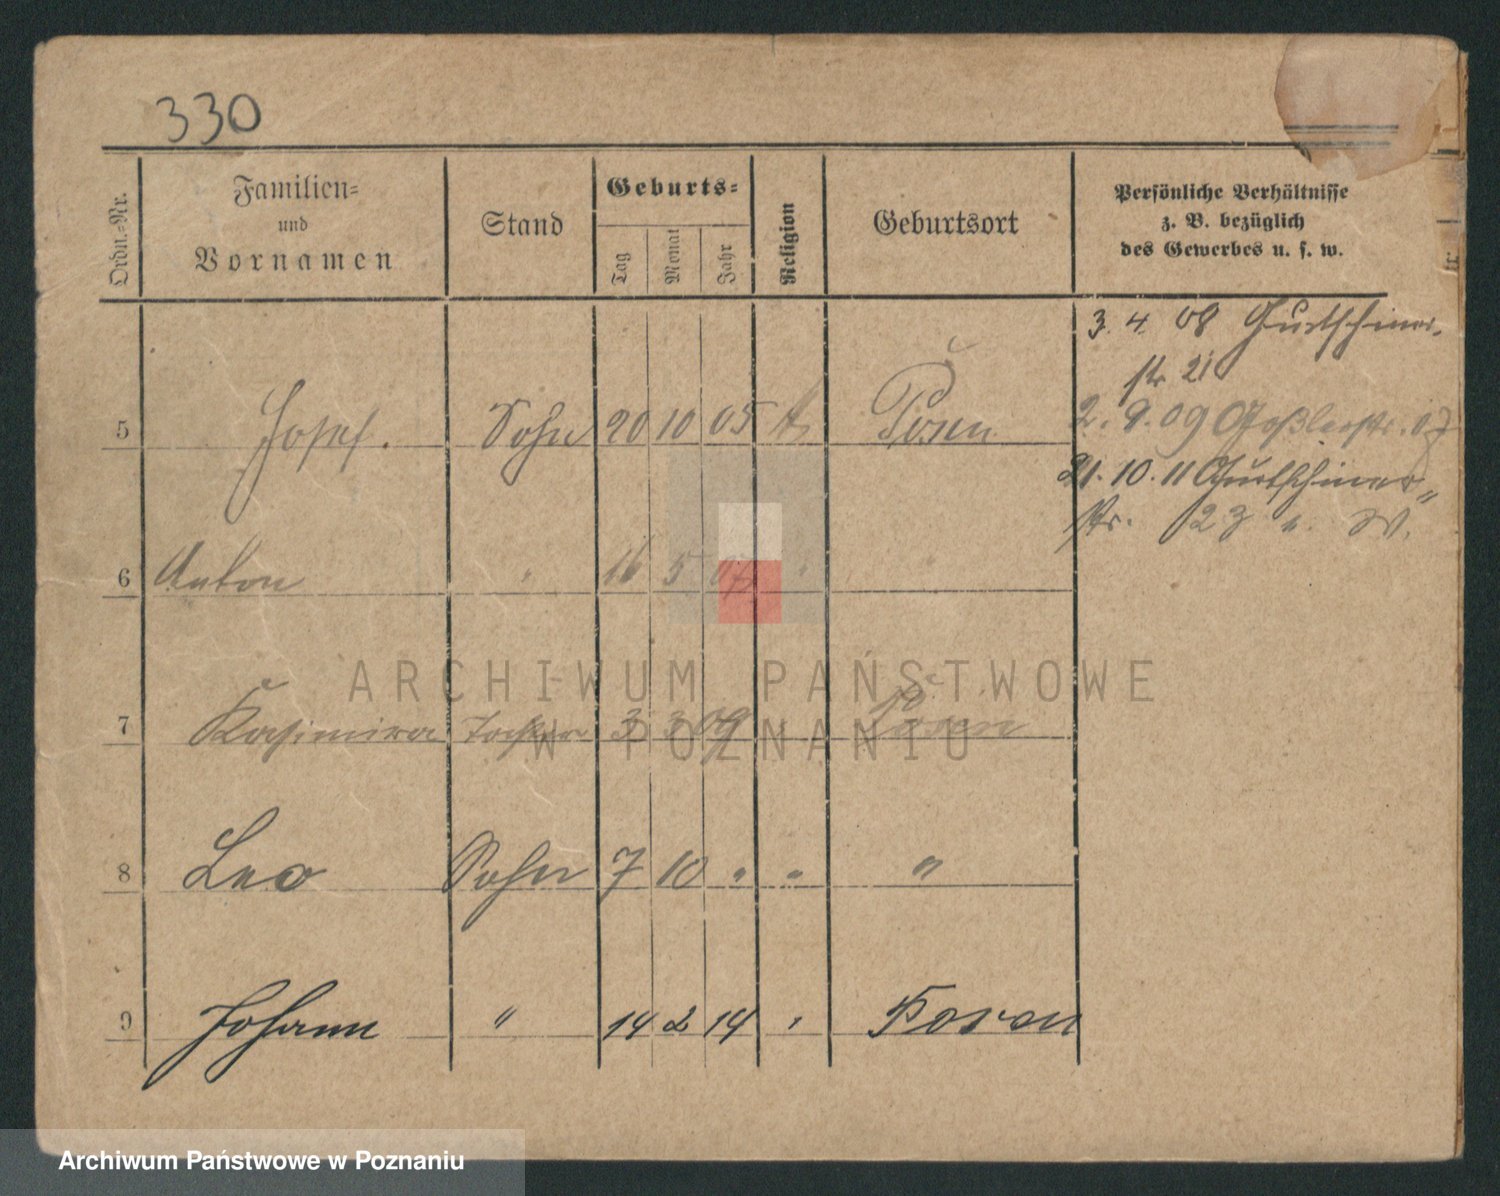 330
Ordn.-Nr.
Familien-
und
Vornamen
Stand
Geburts-
Tag
Monat
Jahr
Religion
Geburtsort
Persönliche Verhältnisse
z. B. bezüglich
des Gewerbes u. s. w.
3. 4. 08 Gurtschiner-
str 21
5 Josef. Sohn 20 10 05 Posen
2. 9. 09 Goßlerstr.
21. 10. 11 Gurtschiner
str. 23
6 Anton " 16 5 07 " "
7 Kasimira Tochter 3 3 09 " Posen
8 Leo Sohn 7 10 " " "
9 Johann " 14 2 14 " Posen
ARCHIWUM PAŃSTWOWE
W POZNANIU
Archiwum Państwowe w Poznaniu